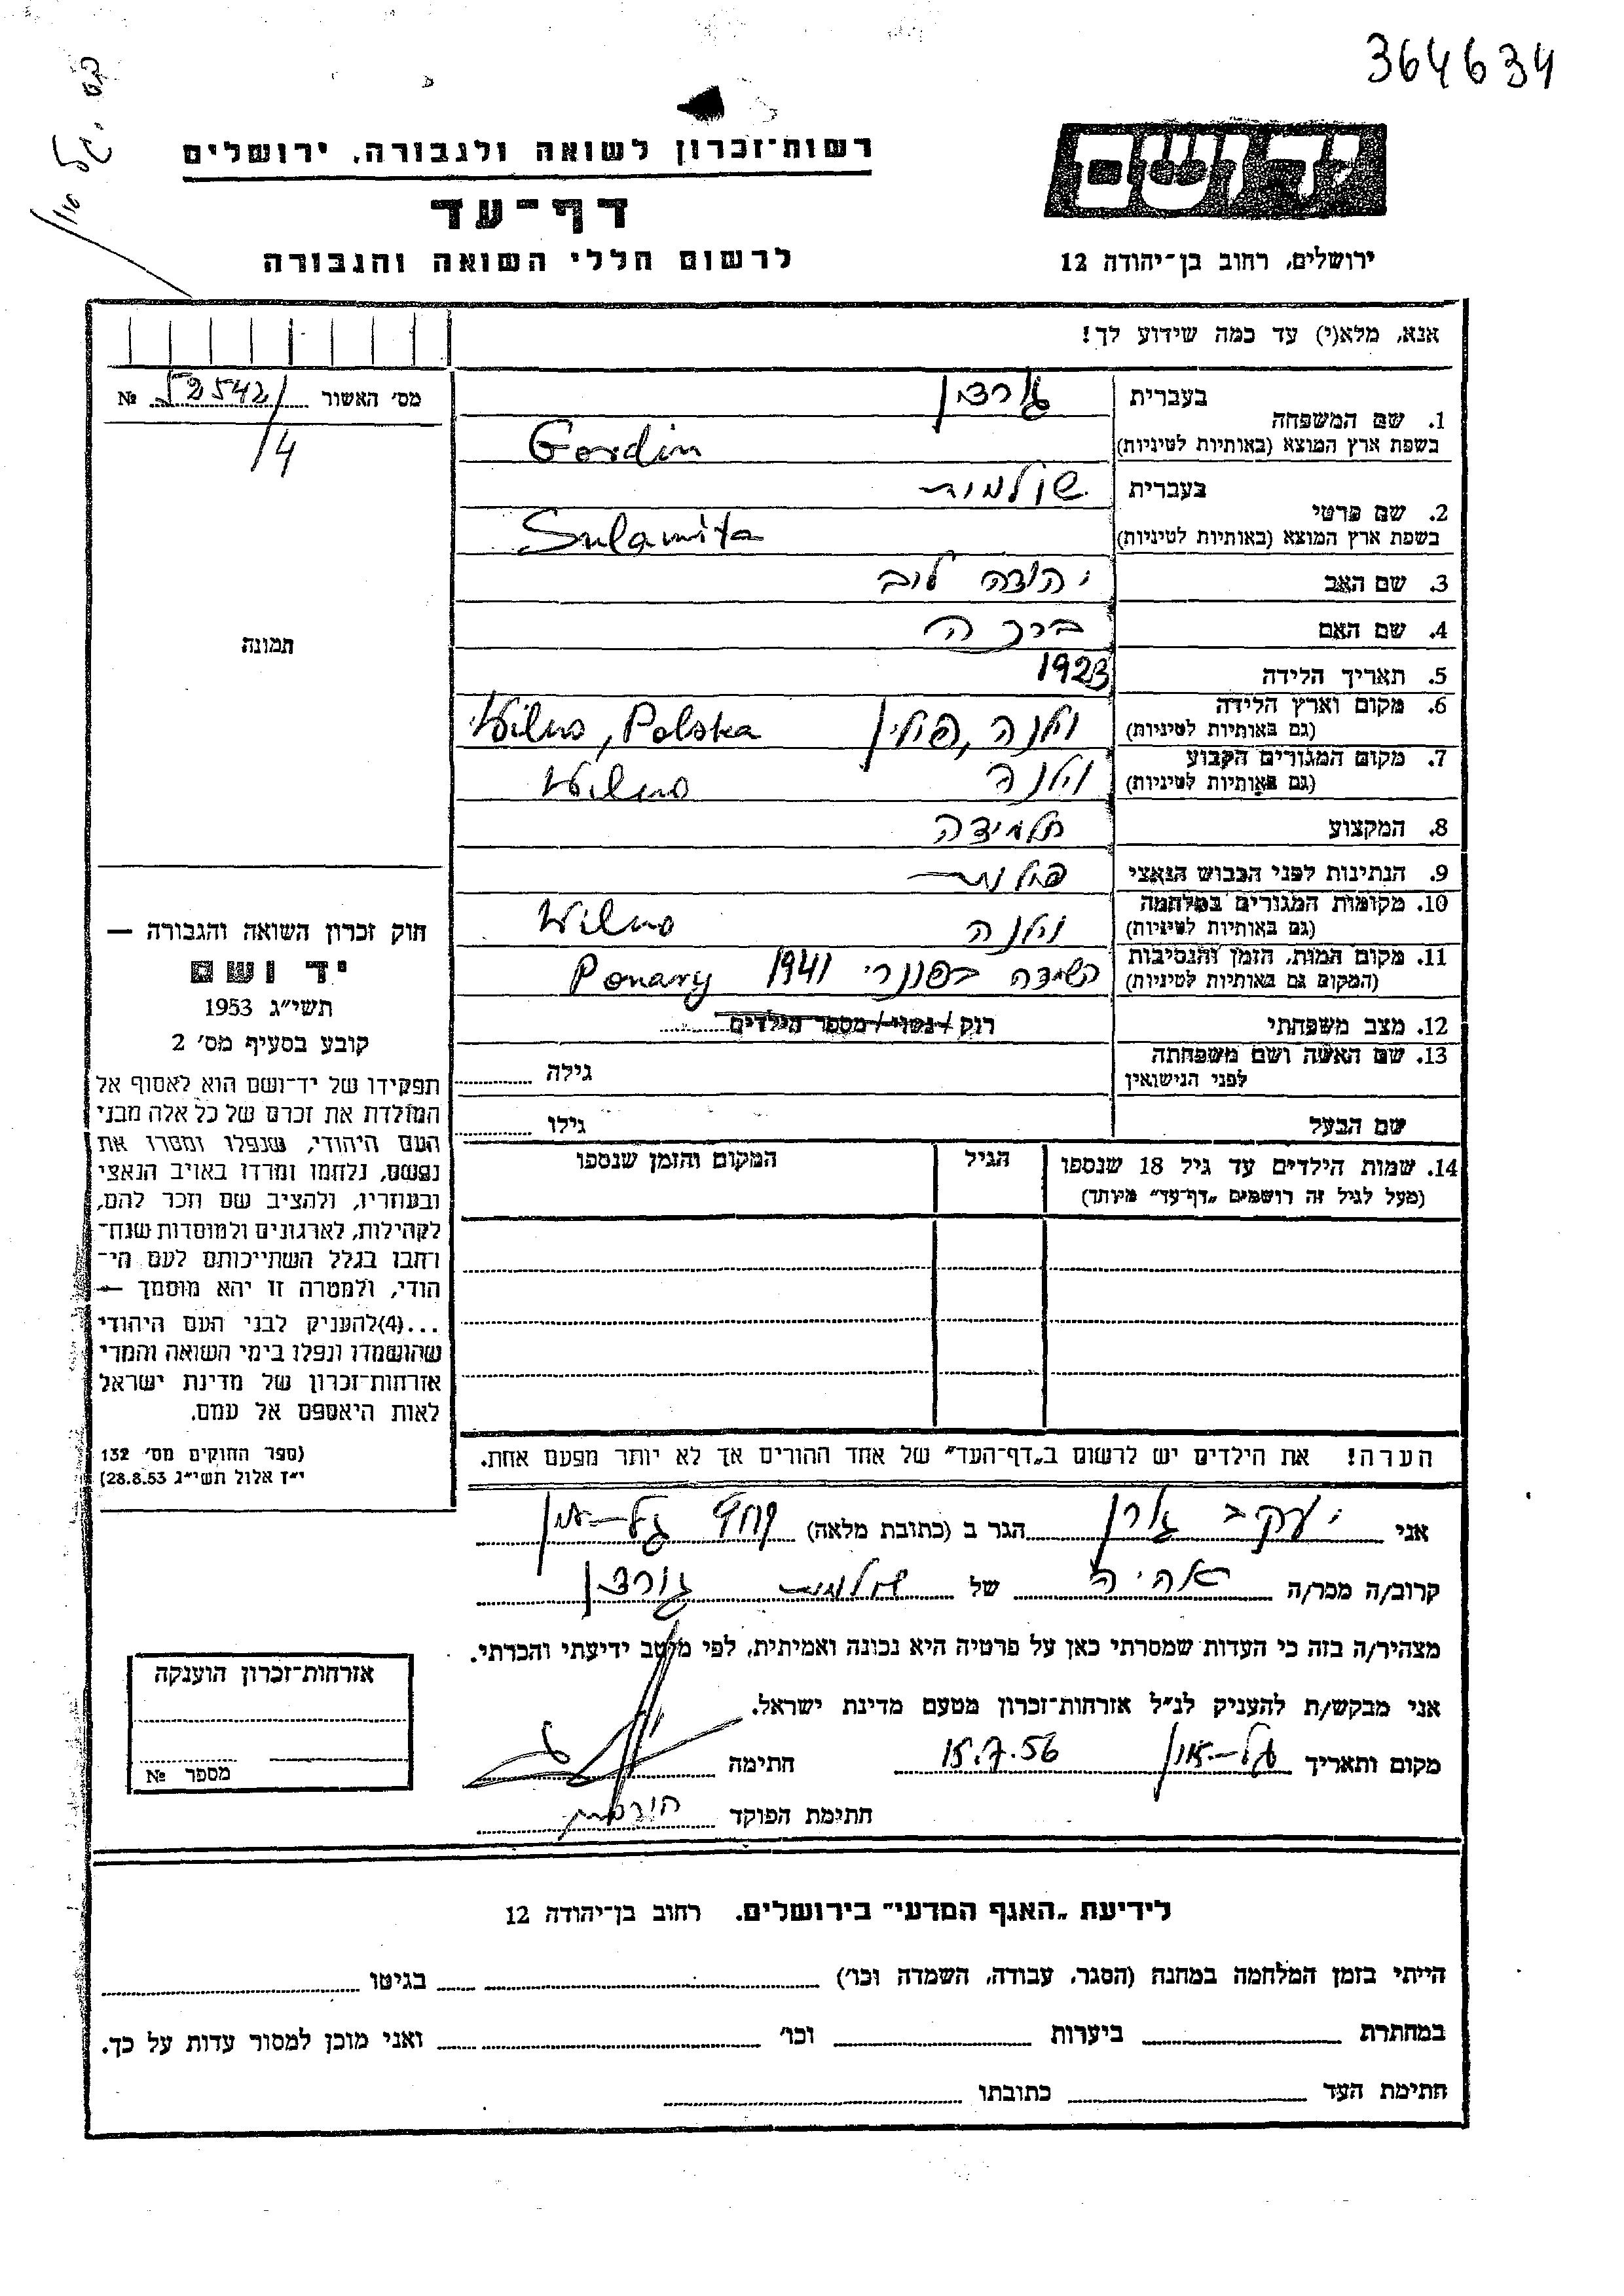 364634
רשות־זכרון לשואה ולגבורה, ירושלים
יד ושם
דף־עד
לרשום חללי השואה והגבורה
ירושלים, רחוב בן־יהודה 12
אנא, מלא(י) עד כמה שידוע לך!
מס׳ האשור 52542 №
/4
תמונה
1. שם המשפחה
בעברית
גורדין
בשפת ארץ המוצא (באותיות לטיניות)
Gordin
2. שם פרטי
בעברית
שולמית
בשפת ארץ המוצא (באותיות לטיניות)
Sulamita
3. שם האב
יהודה לוב
4. שם האם
ברכה
5. תאריך הלידה
1923
6. מקום וארץ הלידה
(גם באותיות לטיניות)
וילנה, פולין Wilno, Polska
7. מקום המגורים הקבוע
(גם באותיות לטיניות)
וילנה Wilno
8. המקצוע
תלמידה
9. הנתינות לפני הכבוש הנאצי
פולנית
10. מקומות המגורים במלחמה
(גם באותיות לטיניות)
וילנה Wilno
11. מקום המות, הזמן והנסיבות
(המקום גם באותיות לטיניות)
השמדה בפונרי 1941 Ponary
12. מצב משפחתי
רוק / נשוי / מספר הילדים
13. שם האשה ושם משפחתה
לפני הנישואין
גילה
שם הבעל
גילו
14. שמות הילדים עד גיל 18 שנספו
(מעל לגיל זה רושמים „דף־עד" מיוחד)
הגיל
המקום והזמן שנספו
חוק זכרון השואה והגבורה —
יד ושם
תשי״ג 1953
קובע בסעיף מס׳ 2
תפקידו של יד־ושם הוא לאסוף אל
המולדת את זכרם של כל אלה מבני
העם היהודי, שנפלו ומסרו את
נפשם, נלחמו ומרדו באויב הנאצי
ובעוזריו, ולהציב שם וזכר להם,
לקהילות, לארגונים ולמוסדות שנח־
רחבו בגלל השתייכותם לעם הי־
הודי, ולמטרה זו יהא מוסמך —
...(4)להעניק לבני העם היהודי
שהושמדו ונפלו בימי השואה והמרי
אזרחות־זכרון של מדינת ישראל
לאות היאספם אל עמם.
(ספר החוקים מס׳ 132
י״ז אלול תשי״ג 28.8.53)
הערה! את הילדים יש לרשום ב„דף־העד" של אחד ההורים אך לא יותר מפעם אחת.
אני יעקב גורן הגר ב (כתובת מלאה) גל־און
קרוב/ה מכר/ה אחיה של שולמית גורדין
מצהיר/ה בזה כי העדות שמסרתי כאן על פרטיה היא נכונה ואמיתית, לפי מיטב ידיעתי והכרתי.
אני מבקש/ת להעניק לנ״ל אזרחות־זכרון מטעם מדינת ישראל.
מקום ותאריך גל־און 15.7.56 חתימה
חתימת הפוקד
אזרחות־זכרון הוענקה
מספר №
לידיעת „האגף המדעי" בירושלים, רחוב בן־יהודה 12
הייתי בזמן המלחמה במחנה (הסגר, עבודה, השמדה וכו׳) בגיטו
במחתרת ביערות וכו׳ ואני מוכן למסור עדות על כך.
חתימת העד כתובתו